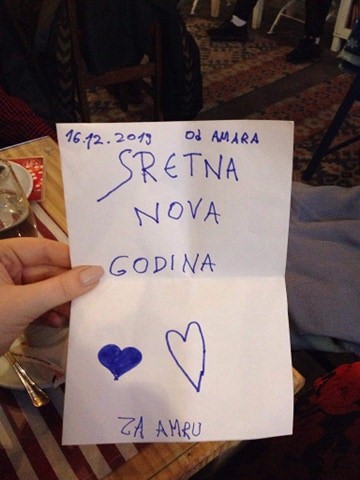 16.12.2019 Od AMARA
SRETNA
NOVA
GODINA
ZA AMRU